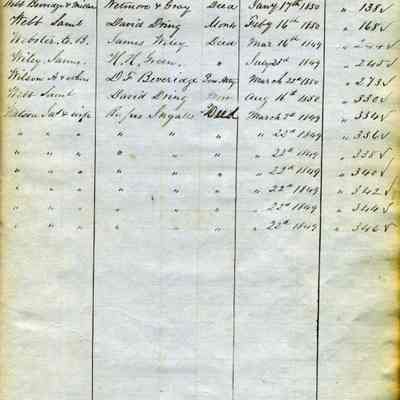 Webb Berridge & Mc Wetmore & Gray Deed Jany 17th 1850 " 138 √
Webb Saml David Dring Morts Feby 16th 1850 " 168 √
Webster, C. B. James Wiley Deed Mar 16th 1849 " 244 √
Wiley James H. H. Green " July 21st 1849 " 248 √
Wilson A & others D. F. Beveridge Pow Atty March 25th 1850 " 273 √
Webb Saml David Dring Mor Aug 16th 1850 " 330 √
Watson Jas & wife Rufus Ingalls Deed March 3d 1849 " 334 √
" " " " " " " 23d 1849 " 336 √
" " " " " " " 23d 1849 " 338 √
" " " " " " " 23d 1849 " 340 √
" " " " " " " 23d 1849 " 342 √
" " " " " " " 23d 1849 " 344 √
" " " " " " " 23d 1849 " 346 √